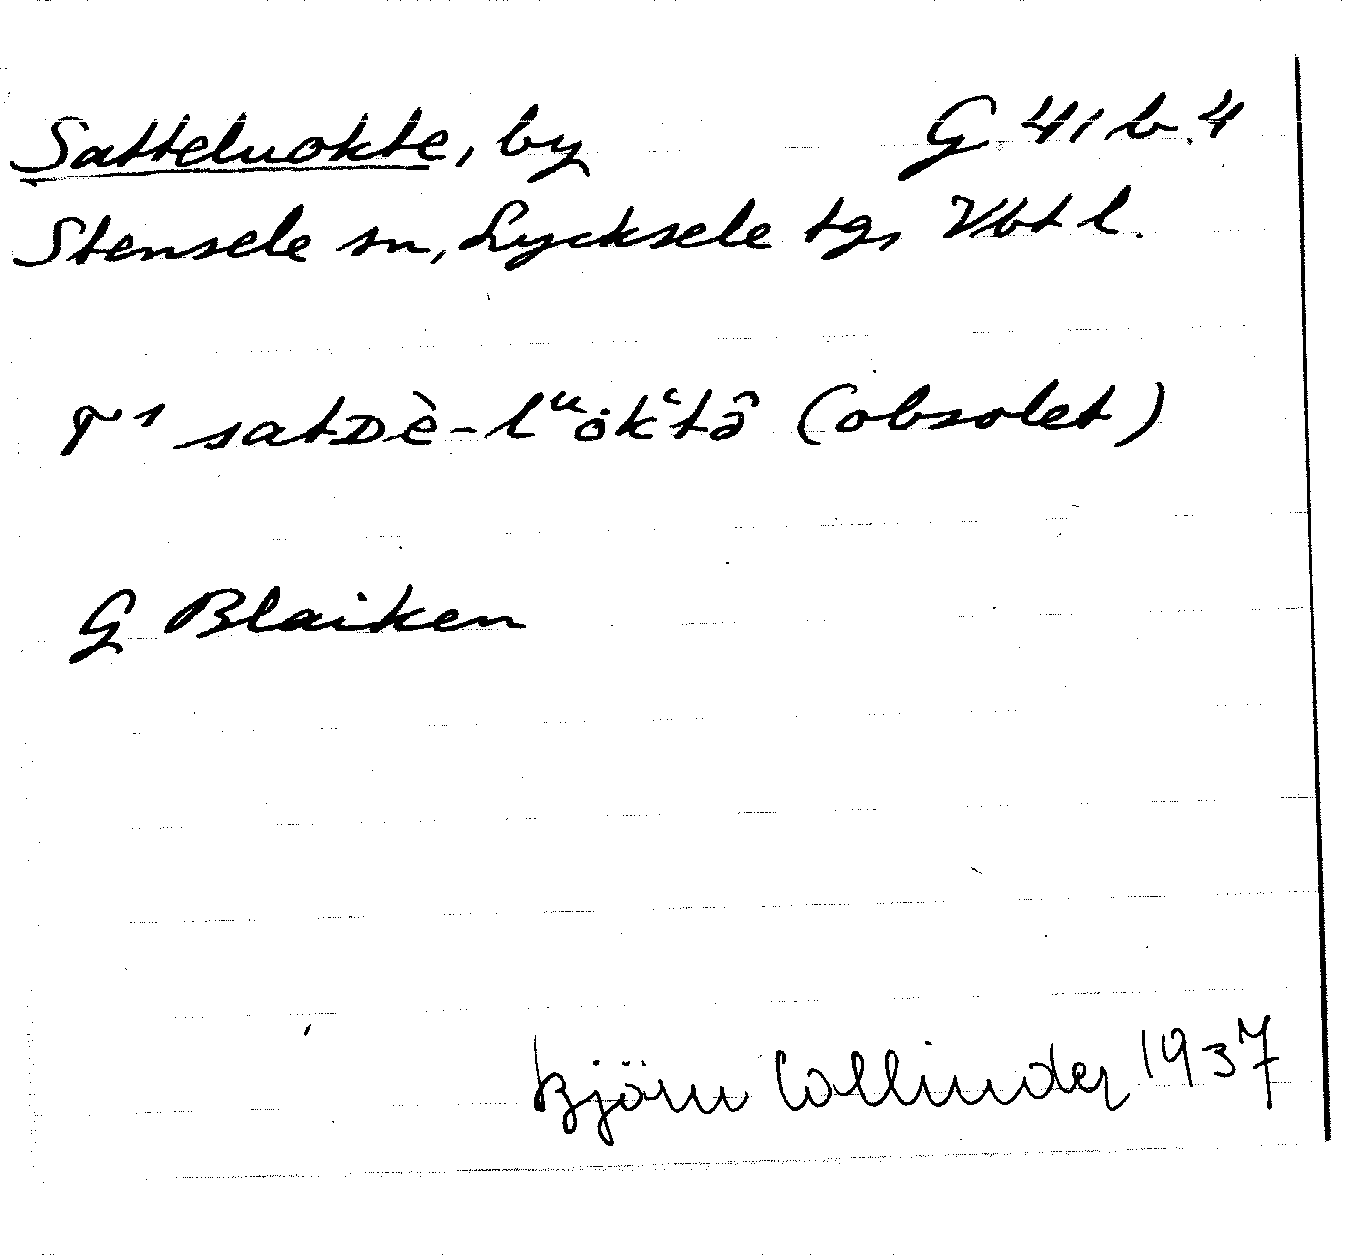 Satteluokte, by G 41 b.4
Stensele sn, Lycksele tg, Vbt l.
T¹ satᴅè-lᵘök‘tâ (obsolet)
G Blaiken
Björn Collinder 1937